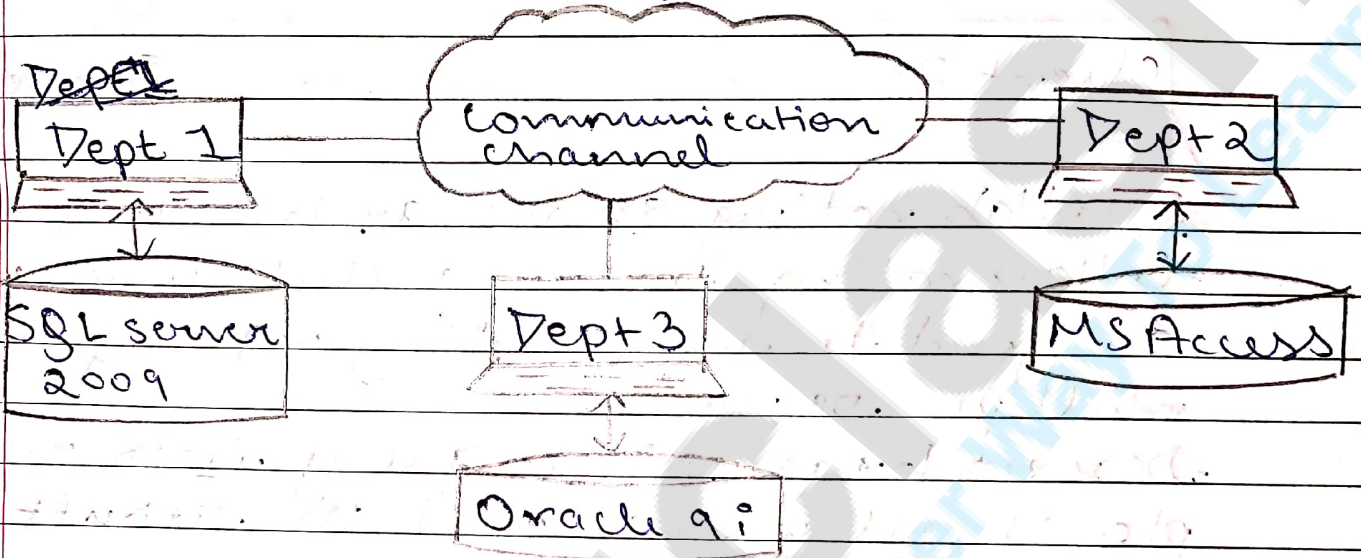 Dept1
Dept 1
Communication
channel
Dept 2
SQL server
2009
Dept 3
MS Access
Oracle 9i